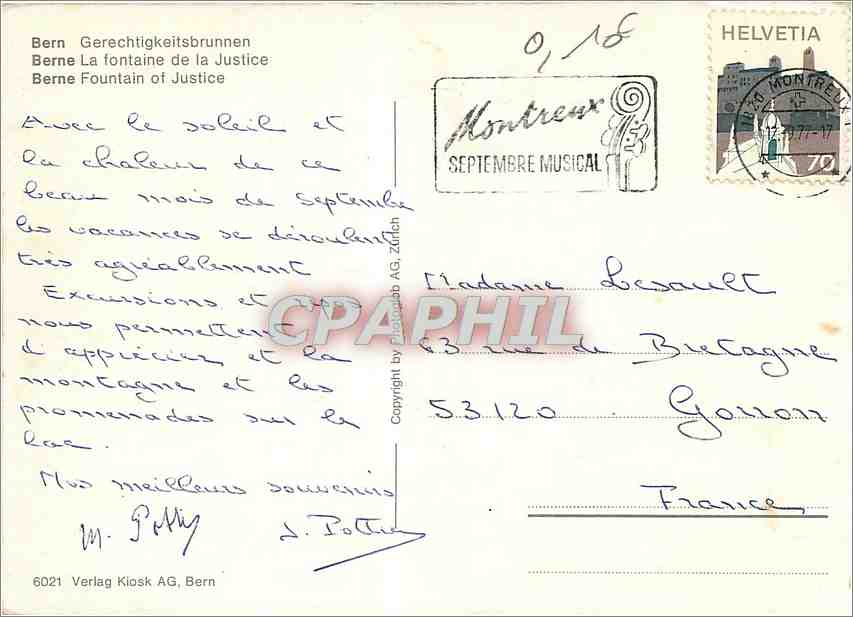 Bern Gerechtigkeitsbrunnen
Berne La fontaine de la Justice
Berne Fountain of Justice
0,10
Montreux
SEPTEMBRE MUSICAL
HELVETIA
70
1820 MONTREUX 1
77-17
Avec le soleil et
la chaleur de ce
beau mois de septembre
les vacances se déroulent
très agréablement
Excursions et repos
nous permettent
d'apprécier et la
montagne et les
promenades sur le
lac.
Mes meilleurs souvenirs
M. Pottier
J. Pottier
Madame Lesault
63 rue de Bretagne
53120 Gorron
France
Copyright by Photoglob AG, Zürich
CPAPHIL
6021 Verlag Kiosk AG, Bern